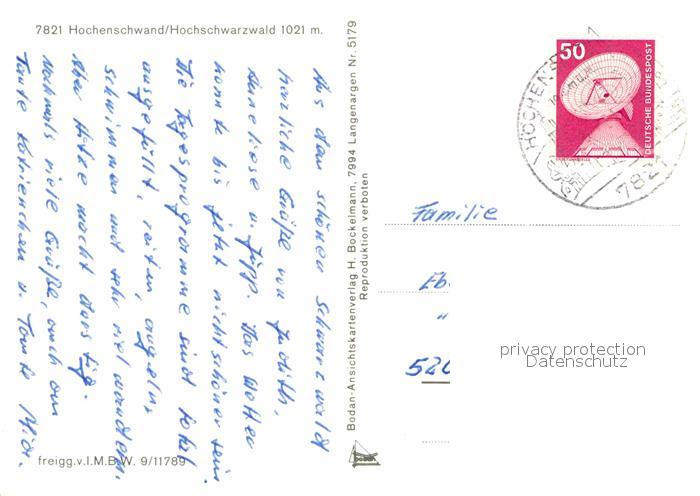 7821 Höchenschwand/Hochschwarzwald 1021 m.
Aus dem schönen Schwarzwald
herzliche Grüße von Judith,
Anneliese u. Jupp. Das Wetter
konnte bis jetzt nicht schöner sein.
Die Tagesprogramme sind total
ausgefüllt, reiten, angeln,
schwimmen und sehr viel wandern.
Aber Hitze macht durstig.
Nochmals viele Grüße, auch an
Tante Katrienchen u. Tante
freigg.v.I.M.B.W. 9/11789
Bodan-Ansichtskartenverlag H. Bockelmann, 7994 Langenargen Nr. 5179
Reproduktion verboten
bodan
50
DEUTSCHE BUNDESPOST
7821
Familie
Eb
"
520
privacy protection
Datenschutz